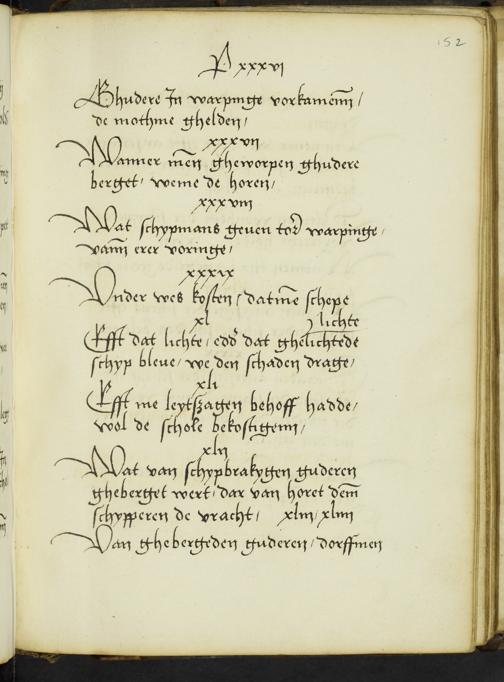 152
P xxxvi
Ghudere In warpinge vorkamenn /
de mothme ghelden /
xxxvii
Wanner men gheworpen ghudere
berget / weme de horen /
xxxviii
Wat schypmans geven tor warpinge /
vann erer voringe /
xxxix
Vnder wes kosten / datme schepe
lichte
xl
Efft dat lichte / edd dat ghelichtede
schyp bleve / we den schaden drage /
xli
Efft me leytszagen behoff hadde /
wol de schole bekostigenn /
xlii
Wat van schypbrakygen guderen
gheberget wert / dar van horet dem
schypperen de vracht / xliii / xliiii
Van ghebergeden guderen / dorffmen